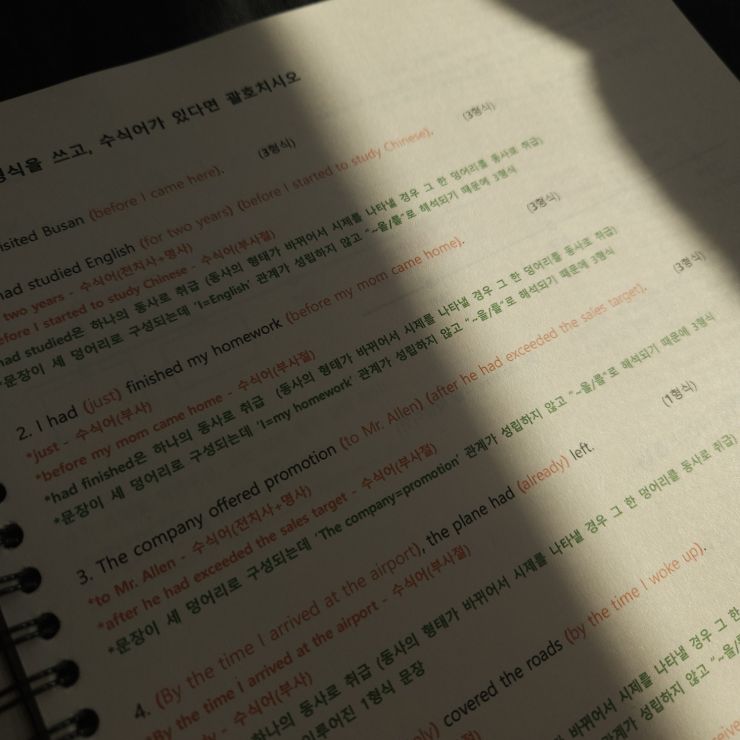 형식을 쓰고, 수식어가 있다면 괄호치시오
visited Busan (before I came here). (3형식)
had studied English (for two years) (before I started to study Chinese). (3형식)
two years - 수식어(전치사+명사)
before I started to study Chinese - 수식어(부사절)
had studied은 하나의 동사로 취급 (동사의 형태가 바뀌어서 시제를 나타낼 경우 그 한 덩어리를 동사로 취급)
*문장이 세 덩어리로 구성되는데 'I=English' 관계가 성립하지 않고 "~을/를"로 해석되기 때문에 3형식
2. I had (just) finished my homework (before my mom came home). (3형식)
*just - 수식어(부사)
*before my mom came home - 수식어(부사절)
*had finished은 하나의 동사로 취급 (동사의 형태가 바뀌어서 시제를 나타낼 경우 그 한 덩어리를 동사로 취급)
*문장이 세 덩어리로 구성되는데 'I=my homework' 관계가 성립하지 않고 "~을/를"로 해석되기 때문에 3형식
3. The company offered promotion (to Mr. Allen) (after he had exceeded the sales target). (3형식)
*to Mr. Allen - 수식어(전치사+명사)
*after he had exceeded the sales target - 수식어(부사절)
*문장이 세 덩어리로 구성되는데 'The company=promotion' 관계가 성립하지 않고 "~을/를"로 해석되기 때문에 3형식
4. (By the time I arrived at the airport), the plane had (already) left. (1형식)
*By the time I arrived at the airport - 수식어(부사절)
- 수식어(부사)
하나의 동사로 취급 (동사의 형태가 바뀌어서 시제를 나타낼 경우 그 한 덩어리를 동사로 취급)
이루어진 1형식 문장
covered the roads (by the time I woke up).
수식어(부사절)
바뀌어서 시제를 나타낼 경우 그 한
관계가 성립하지 않고 "~을/를